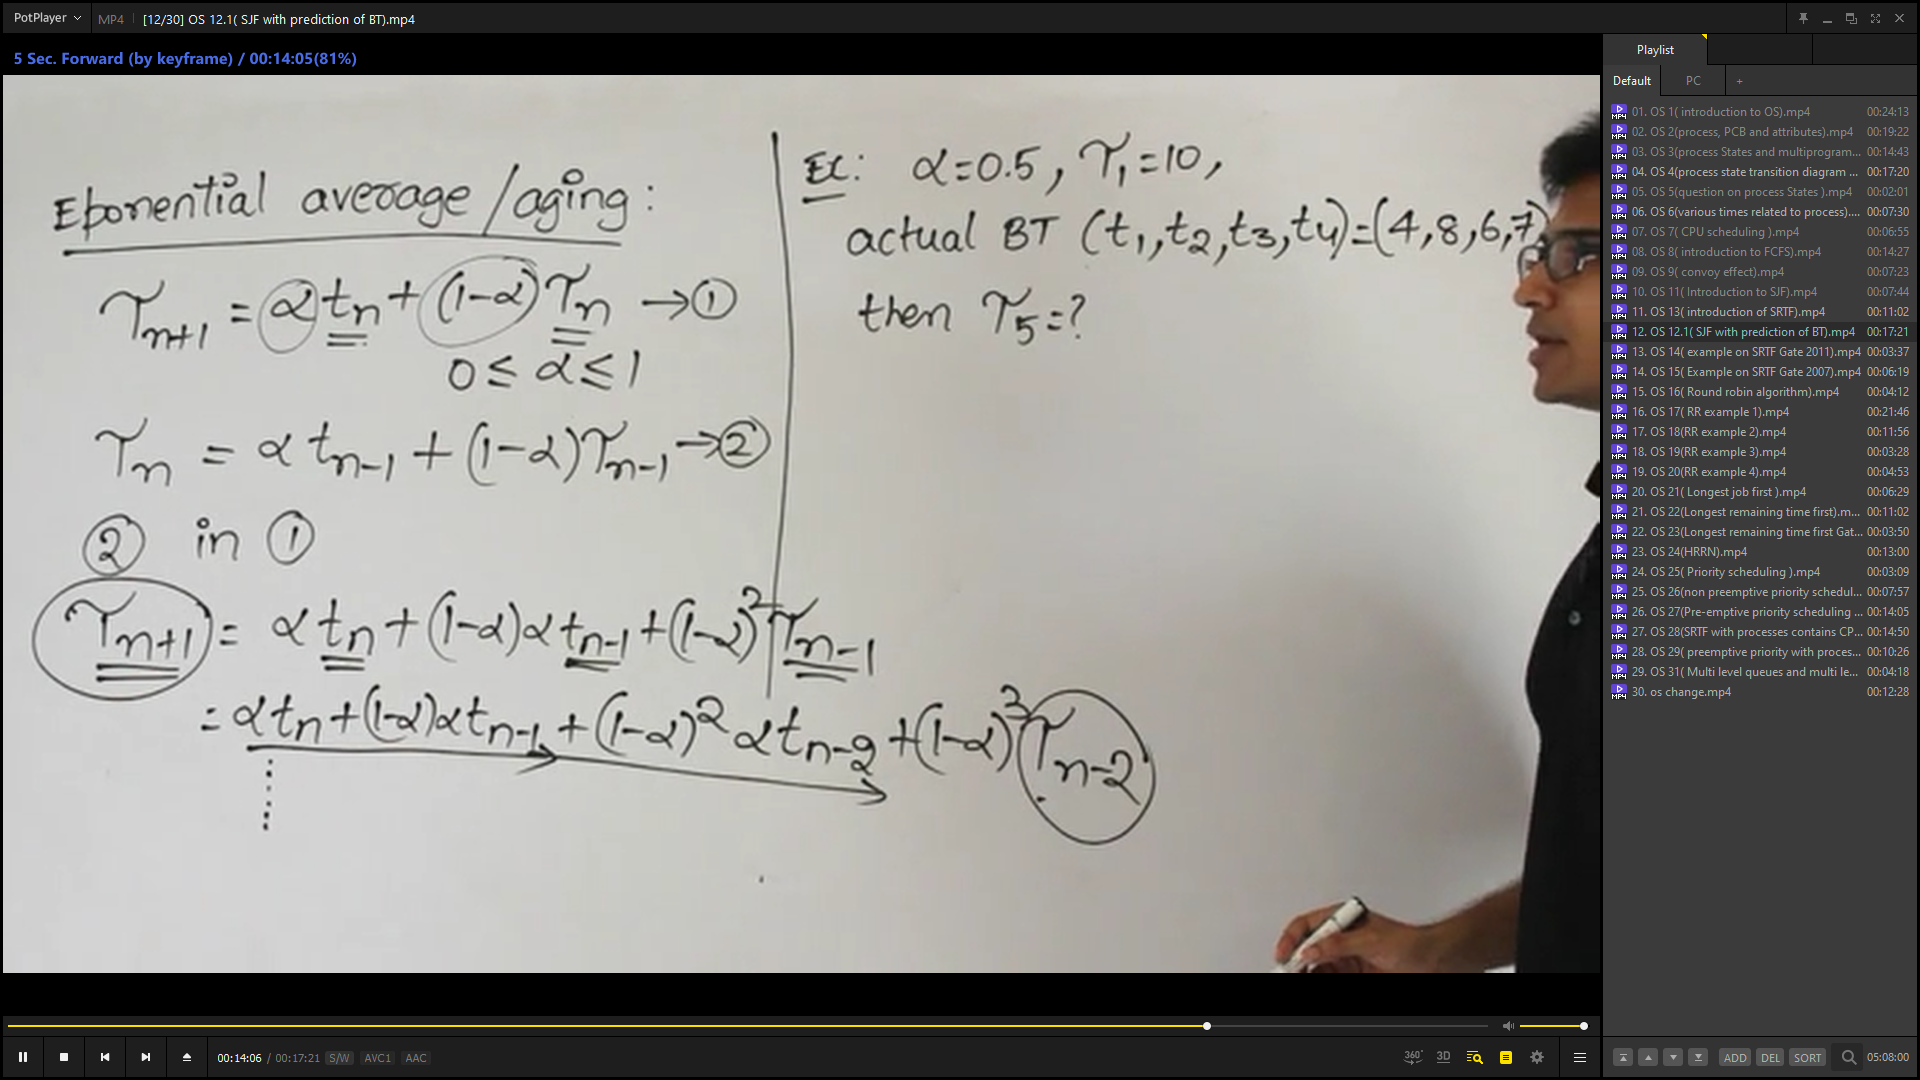 PotPlayer MP4 [12/30] OS 12.1( SJF with prediction of BT).mp4
5 Sec. Forward (by keyframe) / 00:14:05(81%)
Eponential average /aging:
τn+1 = αtn + (1-α)τn → ①
0 ≤ α ≤ 1
τn = αtn-1 + (1-α)τn-1 → ②
② in ①
τn+1 = αtn + (1-α)αtn-1 + (1-α)²τn-1
= αtn + (1-α)αtn-1 + (1-α)²αtn-2 + (1-α)³τn-2
Ex: α=0.5, τ1=10,
actual BT (t1,t2,t3,t4)=(4,8,6,7)
then τ5=?
00:14:06 / 00:17:21 S/W AVC1 AAC
360° 3D
Playlist
Default PC +
01. OS 1( introduction to OS).mp4 00:24:13
02. OS 2(process, PCB and attributes).mp4 00:19:22
03. OS 3(process States and multiprogram... 00:14:43
04. OS 4(process state transition diagram ... 00:17:20
05. OS 5(question on process States ).mp4 00:02:01
06. OS 6(various times related to process).... 00:07:30
07. OS 7( CPU scheduling ).mp4 00:06:55
08. OS 8( introduction to FCFS).mp4 00:14:27
09. OS 9( convoy effect).mp4 00:07:23
10. OS 11( Introduction to SJF).mp4 00:07:44
11. OS 13( introduction of SRTF).mp4 00:11:02
12. OS 12.1( SJF with prediction of BT).mp4 00:17:21
13. OS 14( example on SRTF Gate 2011).mp4 00:03:37
14. OS 15( Example on SRTF Gate 2007).mp4 00:06:19
15. OS 16( Round robin algorithm).mp4 00:04:12
16. OS 17( RR example 1).mp4 00:21:46
17. OS 18(RR example 2).mp4 00:11:56
18. OS 19(RR example 3).mp4 00:03:28
19. OS 20(RR example 4).mp4 00:04:53
20. OS 21( Longest job first ).mp4 00:06:29
21. OS 22(Longest remaining time first).m... 00:11:02
22. OS 23(Longest remaining time first Gat... 00:03:50
23. OS 24(HRRN).mp4 00:13:00
24. OS 25( Priority scheduling ).mp4 00:03:09
25. OS 26(non preemptive priority schedul... 00:07:57
26. OS 27(Pre-emptive priority scheduling ... 00:14:05
27. OS 28(SRTF with processes contains CP... 00:14:50
28. OS 29( preemptive priority with proces... 00:10:26
29. OS 31( Multi level queues and multi le... 00:04:18
30. os change.mp4 00:12:28
ADD DEL SORT 05:08:00